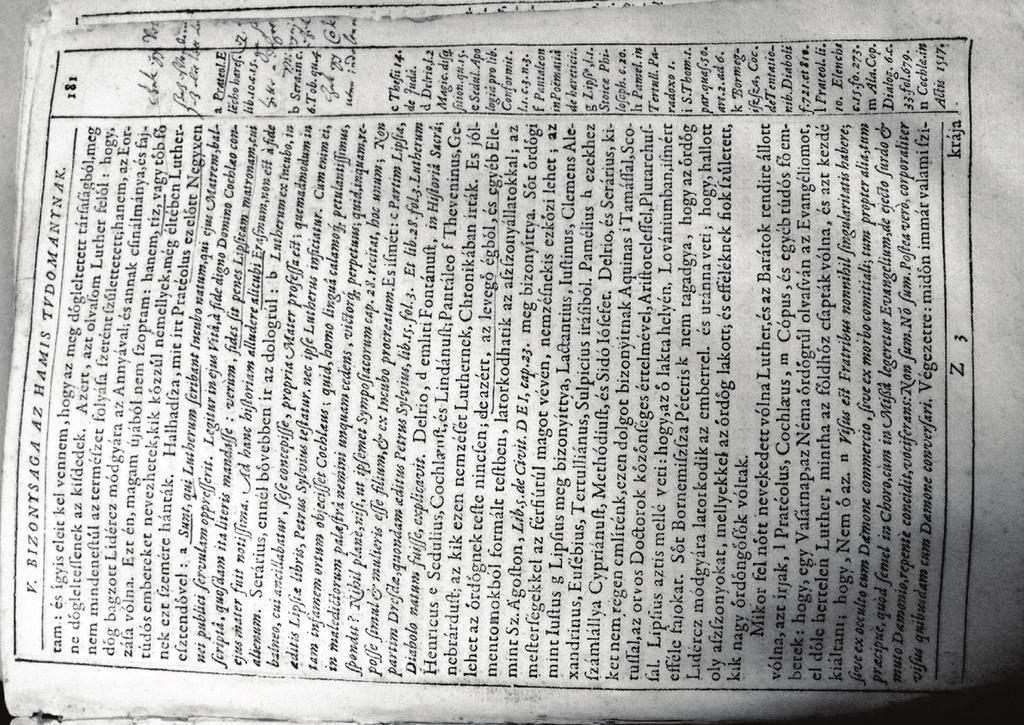 V. BIZONYSAGA AZ HAMIS TVDOMANYNAK. 181
tam: és így is eleit kel vennem, hogy az meg döglelteteett társaságból, meg
ne döglelteſſenek az kiſdedek. Azért, azt olvaſom Luther felől: hogy,
nem mindeneſtül az termeſzet folyáſa ſzerént ſzülettetett; hanem, az Eör-
dög bagzott Lidércz módgyára az Annyával; és annak cſinálmánya, és faj-
záſa vólna. Ezt én, magam ujából nem ſzoptam: hanem, tíz, vagy több fő
túdos embereket nevezhetek, kik közzül némellyek, még éltében Luther-
nek ezt ſzemére hánták. Halhadſza, mit írt Prateólus ez előtt Negyven
eſztendővel: a Sunt, qui Lutherum ſcribant Incubo natum, qui ejus Matrem, bal-
nei publici ſervulam oppreſſerit. Legitur in ejus Vita, à fide digno Domino Cochlæo con-
ſcripta, quoſdam ita literis mandaſſe: verùm, fides ſit penes Lipſicam matronam, cui
ejus mater fuit notiſſima. Ad hanc hiſtoriam alludere alicubi Eraſmum, non eſt à fide
alienum. Serarius, ennél bővebben ír az dologrúl: b Lutherum ex Incubo, in
balneo, cui ancillabatur, ſeſe concepiſſe, propria Mater profeſſa eſt; quemadmodum in
editis Lipſiæ libris, Petrus Sylvius teſtatur, nec ipſe Lutherus inficiatur. Cum enim ei,
tam infamem ortum objeciſſet Cochlæus: quid, homo linguâ calamoq; petulantiſſimus,
in maledicorum palæſtrâ nemini unquam cedens, victor q; perpetuus; quid, inquam, re-
ſpondit? Nihil planè, niſi, ut ipſemet Sympoſiacorum cap. 28. recitat, hoc unum; Non
poſſe ſimul & mulieris eſſe filium, & ex Incubo procreatum. Es iſmét: c Partim Lipſiæ,
partim Dreſdæ, quondam æditus Petrus Sylvius, lib. 15. fol. 3. Et lib. 28. fol. 3. Lutherum
Diabolo natum fuiſſe, explicavit. Delrio, d említi Fontánuſt, in Hiſtoriâ Sacrâ;
Henricus e Sedulius, Cochlæuſt, és Lindánuſt; Pantáleo f Theveninus, Ge-
nebrárduſt; az kik ezen nemzéſét Luthernek, Chronikában írták. Es jól-
lehet az ördögnek teſte nincſen; de azért, az levegő égből, és egyéb Ele-
mentomokból formált teſtben, latorkodhatik az aſſzonyállatokkal; az
mint Sz. Agoſton, Lib. 5. de Civit. DEI, cap. 23. meg bizonyittya. Sőt ördögi
meſterſégekkel az férfiúrúl magot véven, nemzéſnekis ezközi lehet; az
mint Iuſtus g Lipſius meg bizonyittya, Lactantius, Iuſtinus, Clemens Ale-
xandrinus, Euſébius, Tertulliánus, Sulpicius íráſiból. Pamélius h ezekhez
ſzámlállya Cypriánuſt, Methódiuſt, és Sidó Ióſefet. Delrio, és Serarius, ki-
ket nem régen említénk, ezen dolgot bizonyítnak Aquinas i Tamáſſal, Sco-
tuſſal, az orvos Doctorok közönſéges értelmével, Ariſtoteleſſel, Plutarchuſ-
ſal. Lipſius aztis mellé veti: hogy, az ő lakta helyén, Lovániumban, leg több
efféle faſokat. Sőt Bornemiſza Péteris k nem tagadgya, hogy az ördög
Lidércz módgyára latorkodik az emberrel. és utánna veti; hogy, hallott
oly aſſzonyokat, mellyekkel az ördög lakott; és efféléknek fiok ſzületett,
kik nagy ördöngöſök vóltak.
Mikor fel nőtt nevekedett vólna Luther, és az Barátok rendire állott
vólna, azt írják, l Pratéolus, Cochlæus, m Cópus, és egyéb túdós fő em-
berek: hogy, egy Vaſárnap, az Néma ördögrűl olvaſván az Evangéliomot
el dőle hertelen Luther, mintha az főldhöz cſapták vólna, és azt kezdé
kiáltani; hogy, Nem ő az. n Viſus eſt Fratribus nonnihil ſingularitatis habere;
ſive ex occulto cum Dæmone commercio, ſive ex morbo comitiali; tum propter alia, tum
præcipuè, quòd ſemel in Choro, cùm in Miſſâ legeretur Evangelium, de ejecto ſurdo &
muto Dæmonio, repentè concidit, vociferans: Non ſum, Nō ſum. Poſtea verò, corporaliter
viſus quibuſdam cum Dæmone converſari. Végezetre: midőn immár valami ſzi-
Z 3
krája
a Prateol. E
lēcho hæreſ. L.
lib. 10. 15.
b Serarius c.
6. Tob. qu. 4
de Iuda.
c Theſi 14.
d Delrio, l. 2
Magic. diſq.
ſition. qu. 15.
e Sedul. Apo
logiâ pro lib.
Conformit.
l. 1. c. 3. n. 3.
f Pantaleon
in Poëmatiâ
de hæreticis.
g Lipſ⁹, l. 1.
Stoicæ Phi-
loſoph. c. 20.
h Pamel. in
Tertull. Pa-
radoxo 1.
i S. Thom. 1.
par. quæſ. 50.
art. 2. ad 6.
k Bornege-
iſſeſza, Cóc.
de Tentatio-
nib. Diaboli
f. 721. et 810.
l Prateol. li.
10. Elenchis
c. 15. fo. 273.
m Ala. Cop.
Dialog. 6. c.
33. fol. 979.
n Cochlæ. in
Actis 1517.